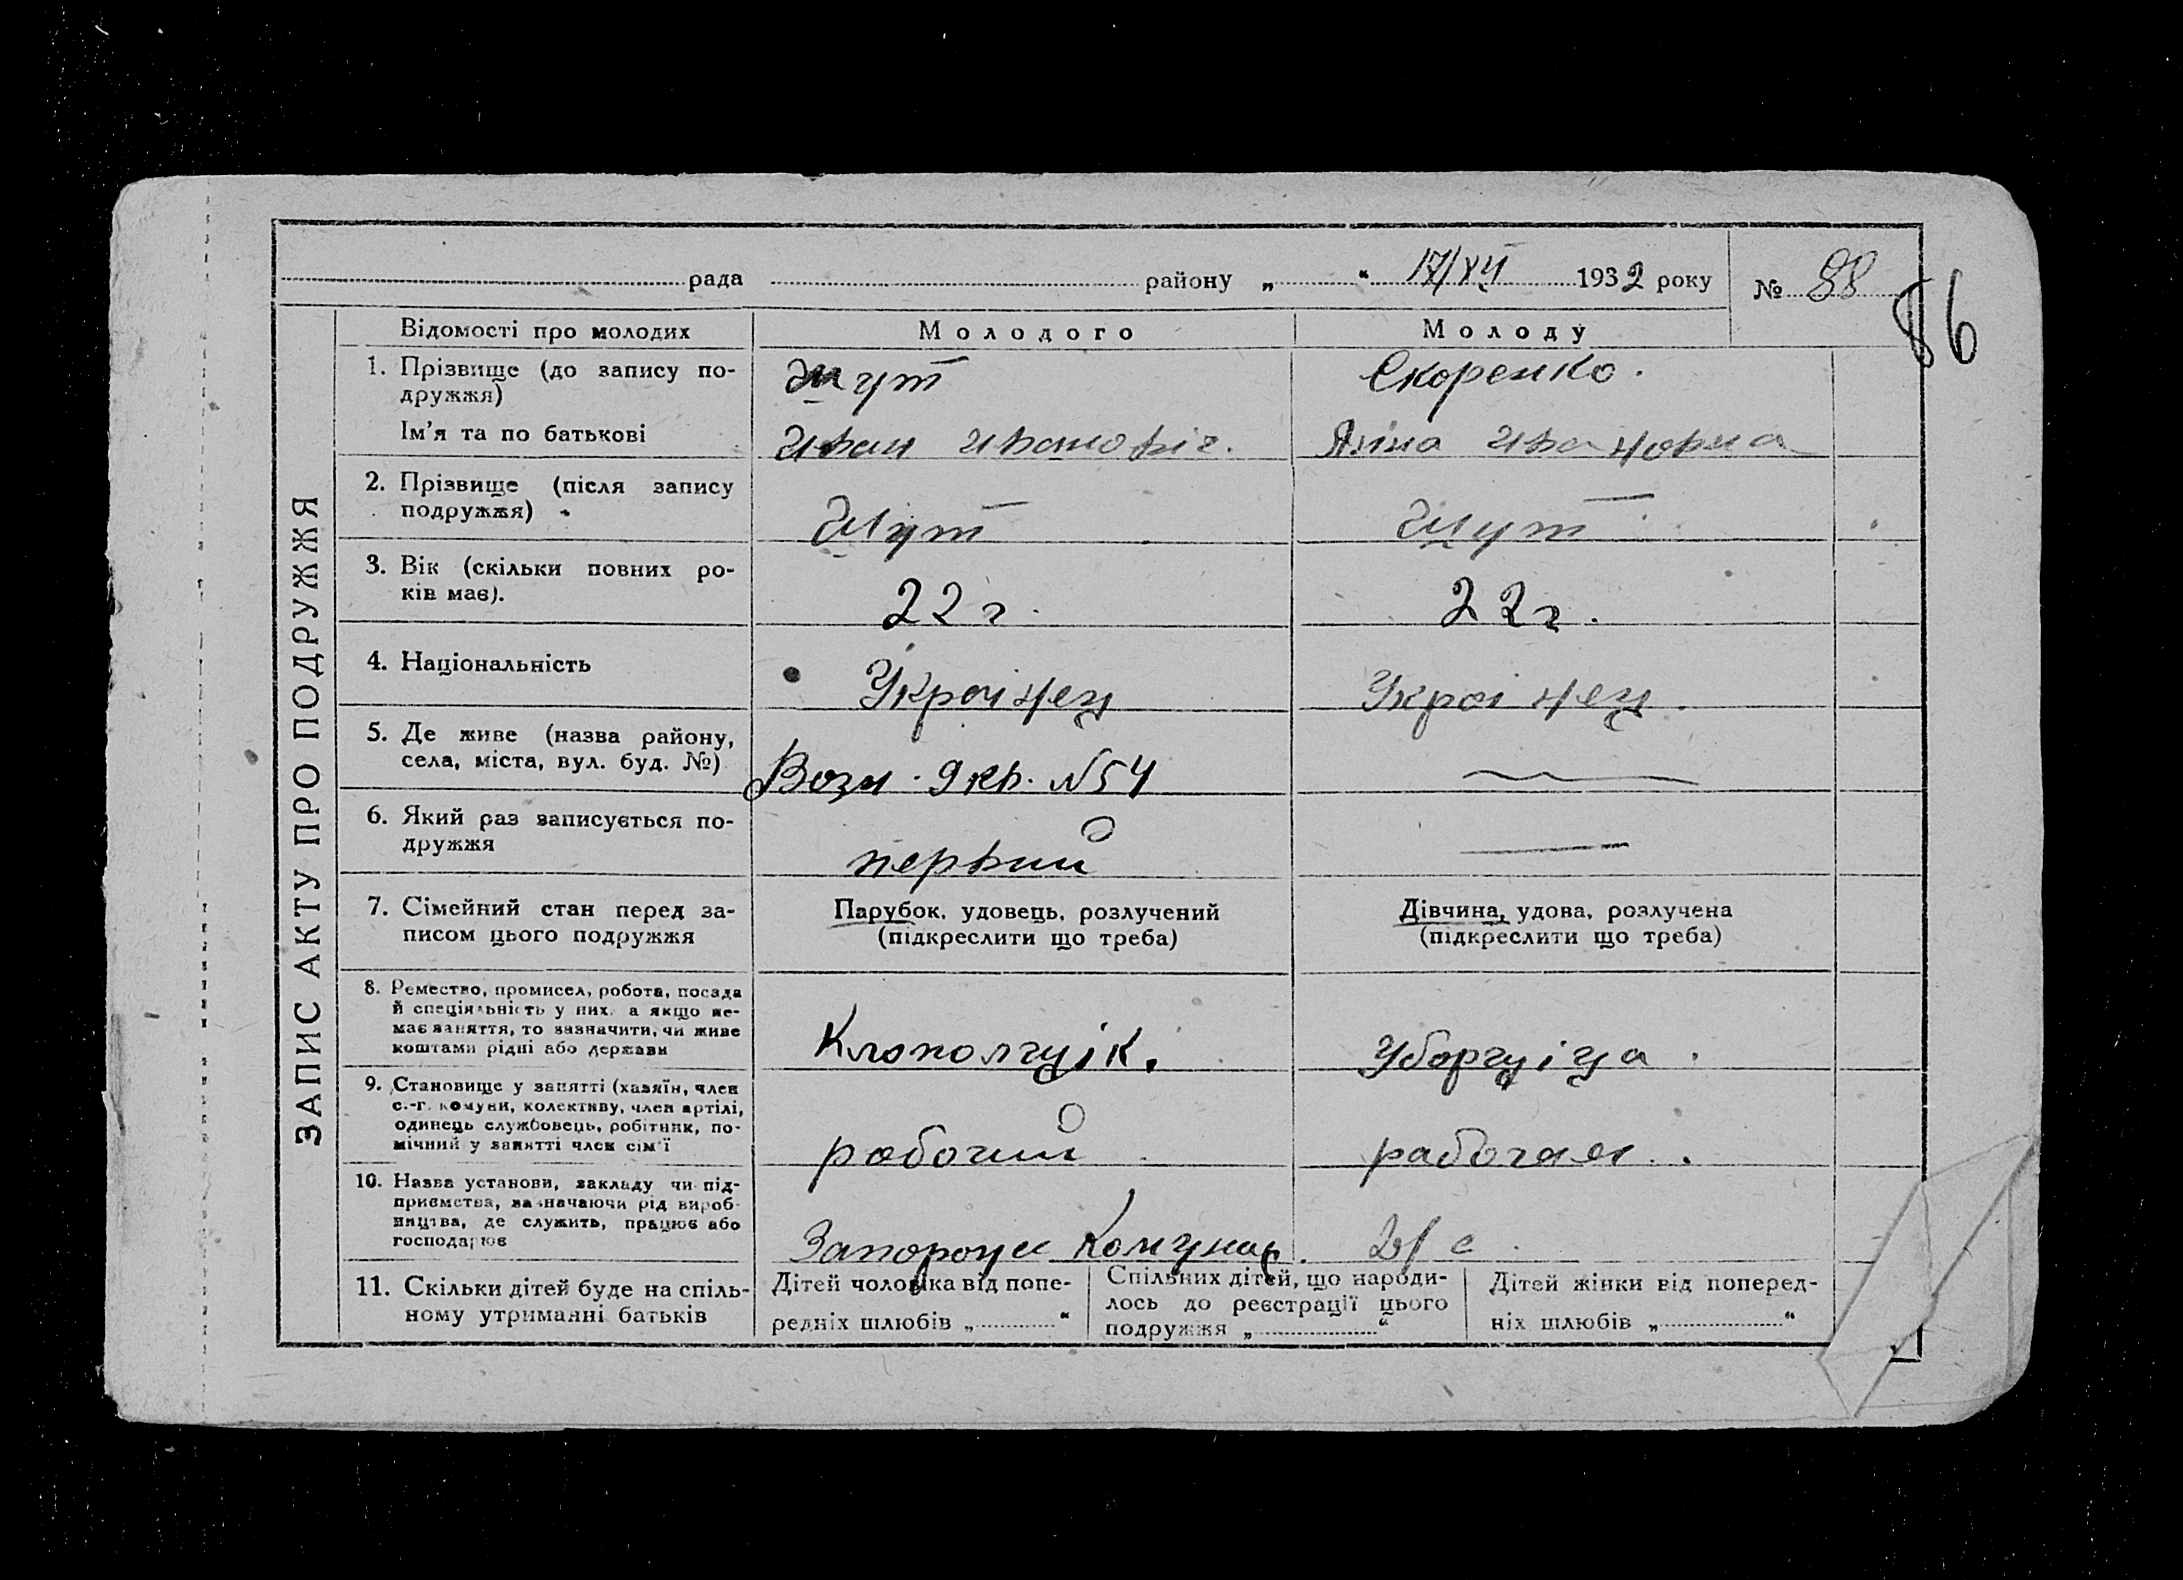 рада району „ “ 17/XII 1932 року № 88
86
ЗАПИС АКТУ ПРО ПОДРУЖЖЯ
Відомості про молодих Молодого Молоду
1. Прізвище (до запису по-
дружжя)
Шут Скоренко.
Ім'я та по батькові
Иван Иванович. Аніна Ивановна
2. Прізвище (після запису
подружжя)
Шут Шут
3. Вік (скільки повних ро-
ків має).
22 г. 22 г.
4. Національність
Українец Українец.
5. Де живе (назва району,
села, міста, вул. буд. №)
Возн. 9 кв. №54
6. Який раз записується по-
дружжя
первий
7. Сімейний стан перед за-
писом цього подружжя
Парубок, удовець, розлучений
(підкреслити що треба)
Дівчина, удова, розлучена
(підкреслити що треба)
8. Ремество, промисел, робота, посада
й спеціяльність у них, а якщо не-
має заняття, то зазначити, чи живе
коштами рідні або держави
Уборщіца.
9. Становище у занятті (хазяїн, член
с.-г. комуни, колективу, член артілі,
одинець службовець, робітник, по-
мічний у занятті член сім'ї
рабочий рабочая.
10. Назва установи, закладу чи під-
приємства, зазначаючи рід вироб-
ництва, де служить, працює або
господарює
Комунар.
11. Скільки дітей буде на спіль-
ному утриманні батьків
Дітей чоловіка від попе-
редніх шлюбів „ “
Спільних дітей, що народи-
лось до реєстрації цього
подружжя „ “
Дітей жінки від поперед-
ніх шлюбів „ “